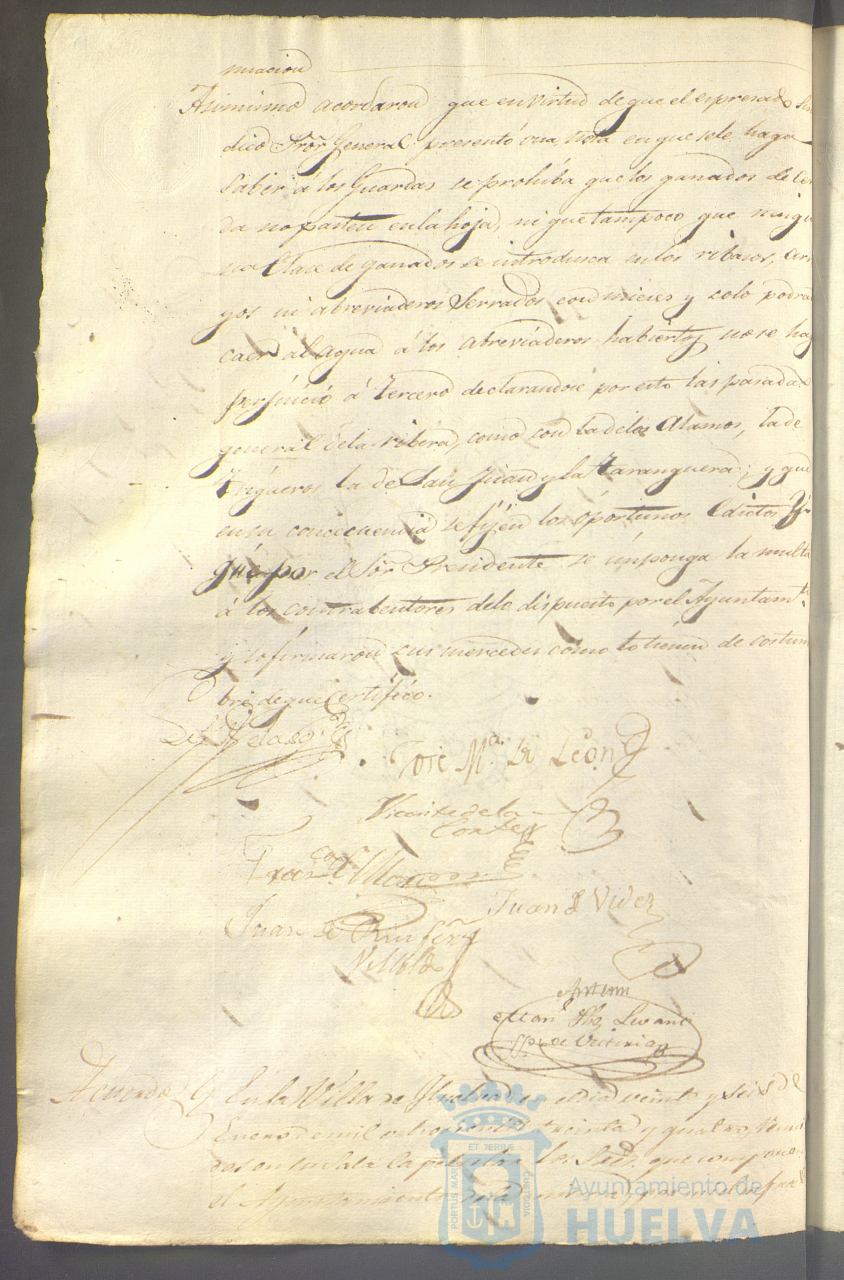 nuacion
Asimismo acordaron que en virtud de que el espresado Sin
dico Pror. General presentó una nota en que se le haga
saber á los Guardas se prohiba que los ganados de Cer
da no pasten en la hoja, ni que tampoco que ningu
na Clase de ganados se introdusca en los ribasos, 
gos ni abreviaderos Serrados con mieses y solo podran
caer al agua á los abreviaderos habiertos no se haga
perjuicio á tercero declarandose por esto las paradas
general de la ribera, como son la de los Alamos, la de
Trigueros la de San Juan y la Taranguera; y que
en su concecuencia se fijen los oportunos Edictos y
que por el Sor. Presidente se imponga la multa
á los contrabentores de lo dispuesto por el Ayuntamto.
y lo firmaron sus mercedes como lo tienen de costum
bre de que Certifico.
José Ma. de Leon
Vicente de la
Corte
Franco.
Juan de Videz
Juan de
Villalba
Ante mi
de Victoria
Acuerdo En la Villa de Huelva en el dia veinte y seis de
Enero de mil ochocientos treinta y quatro,
dos en su Sala Capitular los que componen
el Ayuntamiento
ET TERRAE
PORTUS MARIS
CUSTODIA
Ayuntamiento de
HUELVA